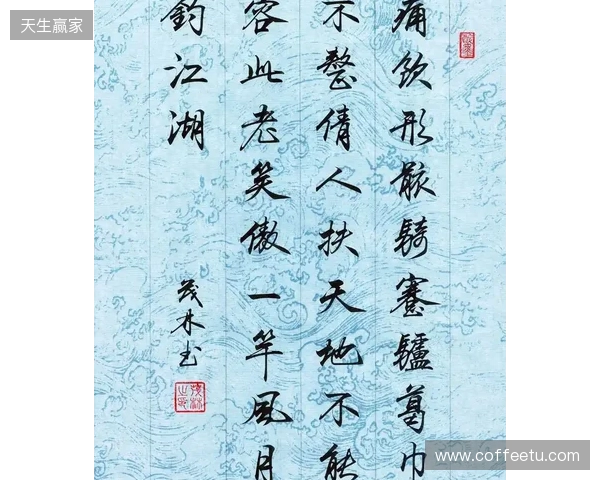 天生赢家
痛飲形骸騎蹇驢葛巾
不整倩人扶天地不能
容此老笑傲一竿風月
釣江湖
茂林书
www.coffeetu.com